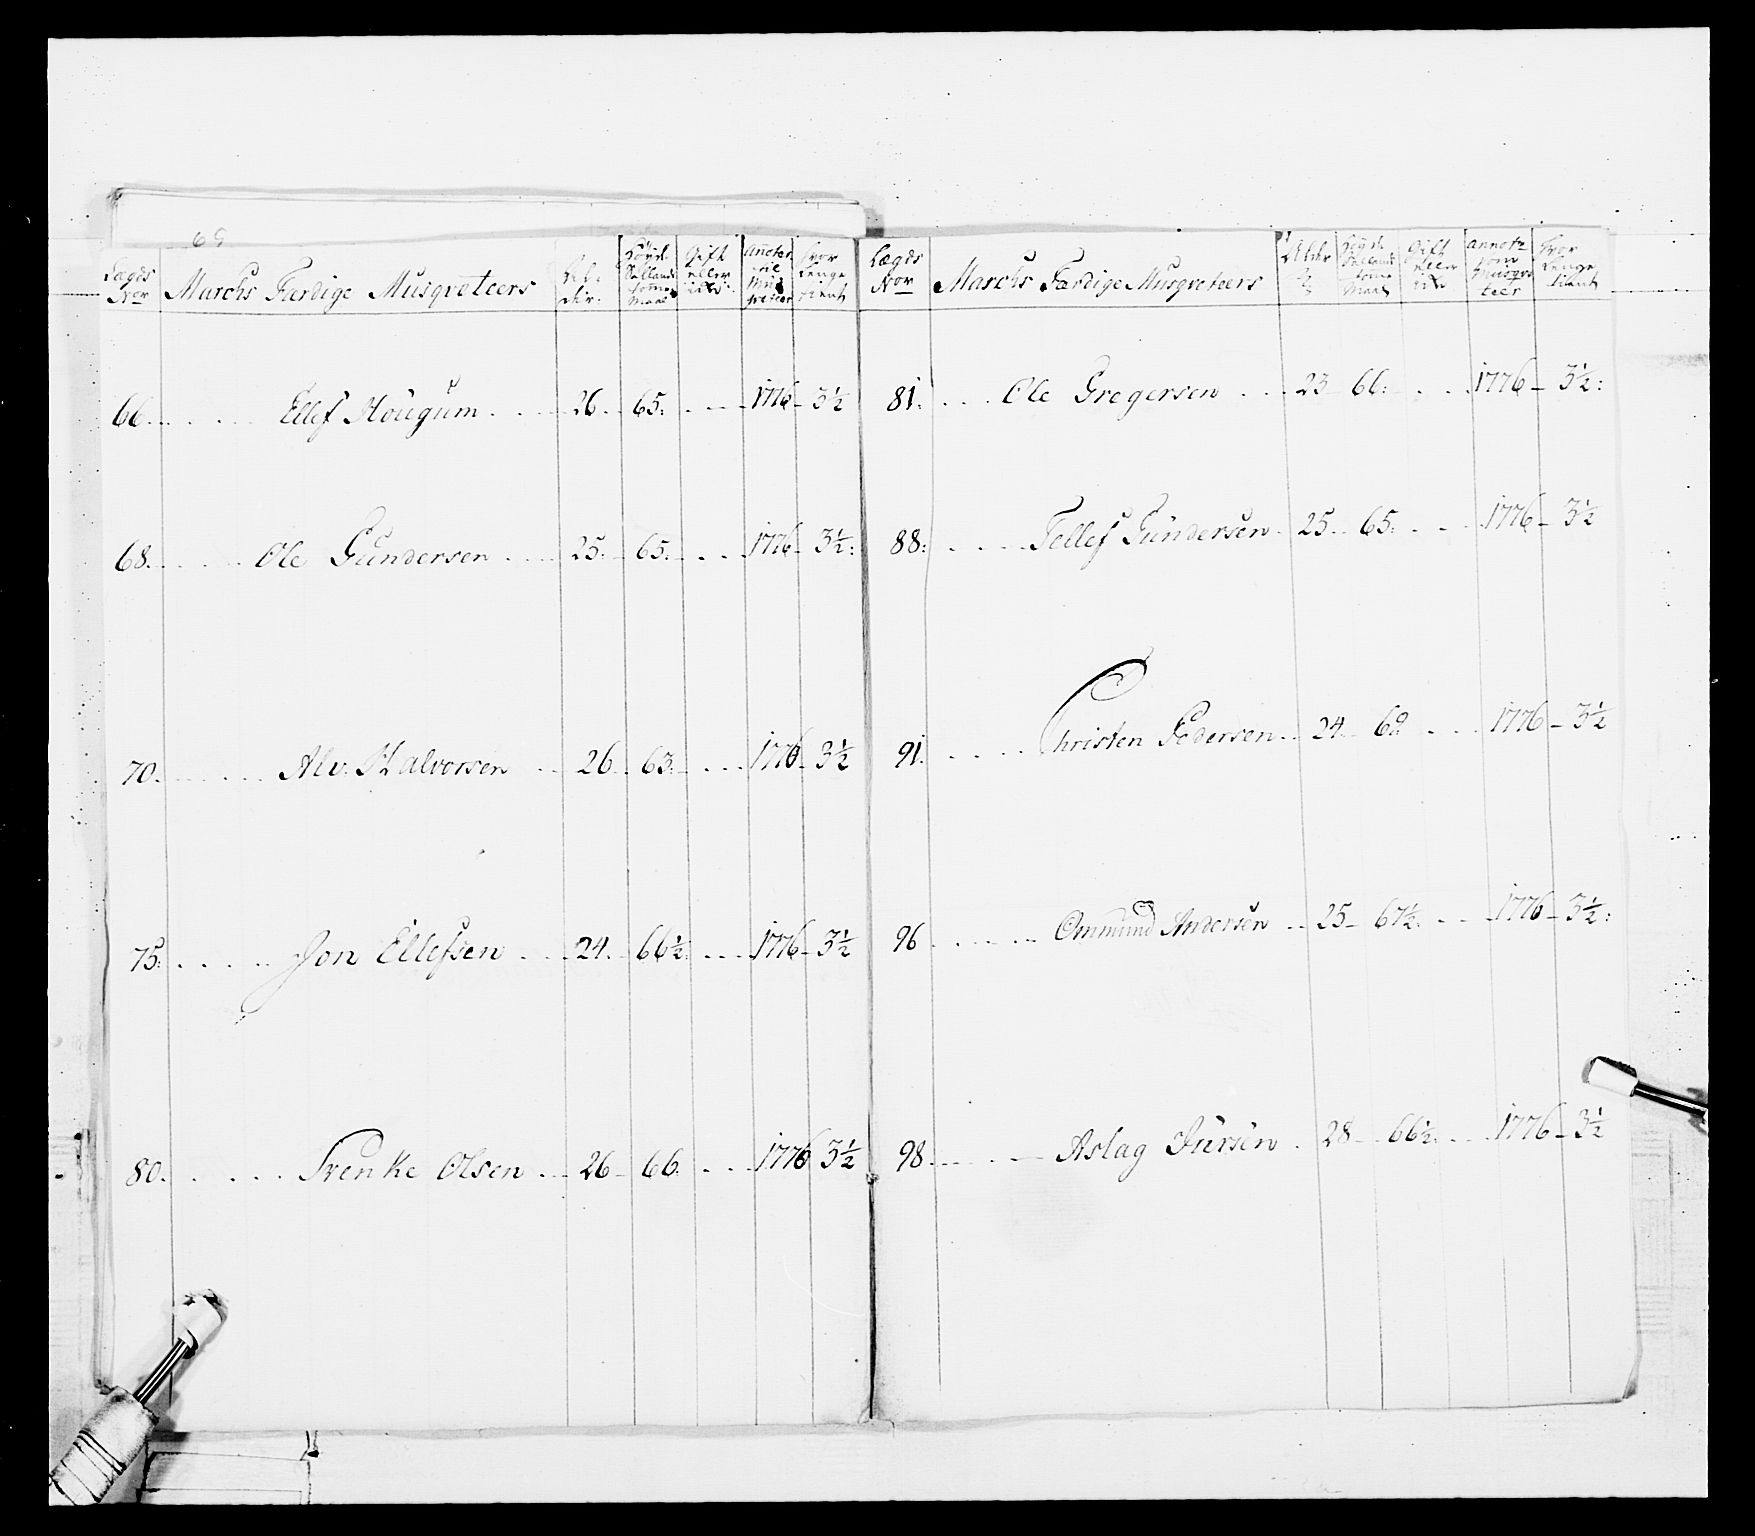 69
Lægds Nor Marchs Færdige Musqveteers Höyde Sællands tomme Maal Gift eller ikke Hvor Lenge tient
66. Ellef Hougum 26. 65: 1776 3½
68. Ole Gundersen 25: 65. 1776 3½:
70. Alv. Halvorsen 26 63. 1776 3½
75: Jon Ellefsen 24. 66½: 1776 3½
80. Svenke Olsen 26 66 1776 3½
Lægds Nor Marchs Færdige Musqveteers Alder Höyde Sællands tomme Maal Gift eller annotz som Musqve teer Hvor Lenge tient
81. Ole Gregersen 23 66: 1776 3½:
88: Tellef Gundersen 25 65: 1776 3½
91. Christen Pedersen 24 69 1776 3½
96 Ommund Andersen 25 67½ 1776 3½:
98 Aslag 28 66½ 1776 3½